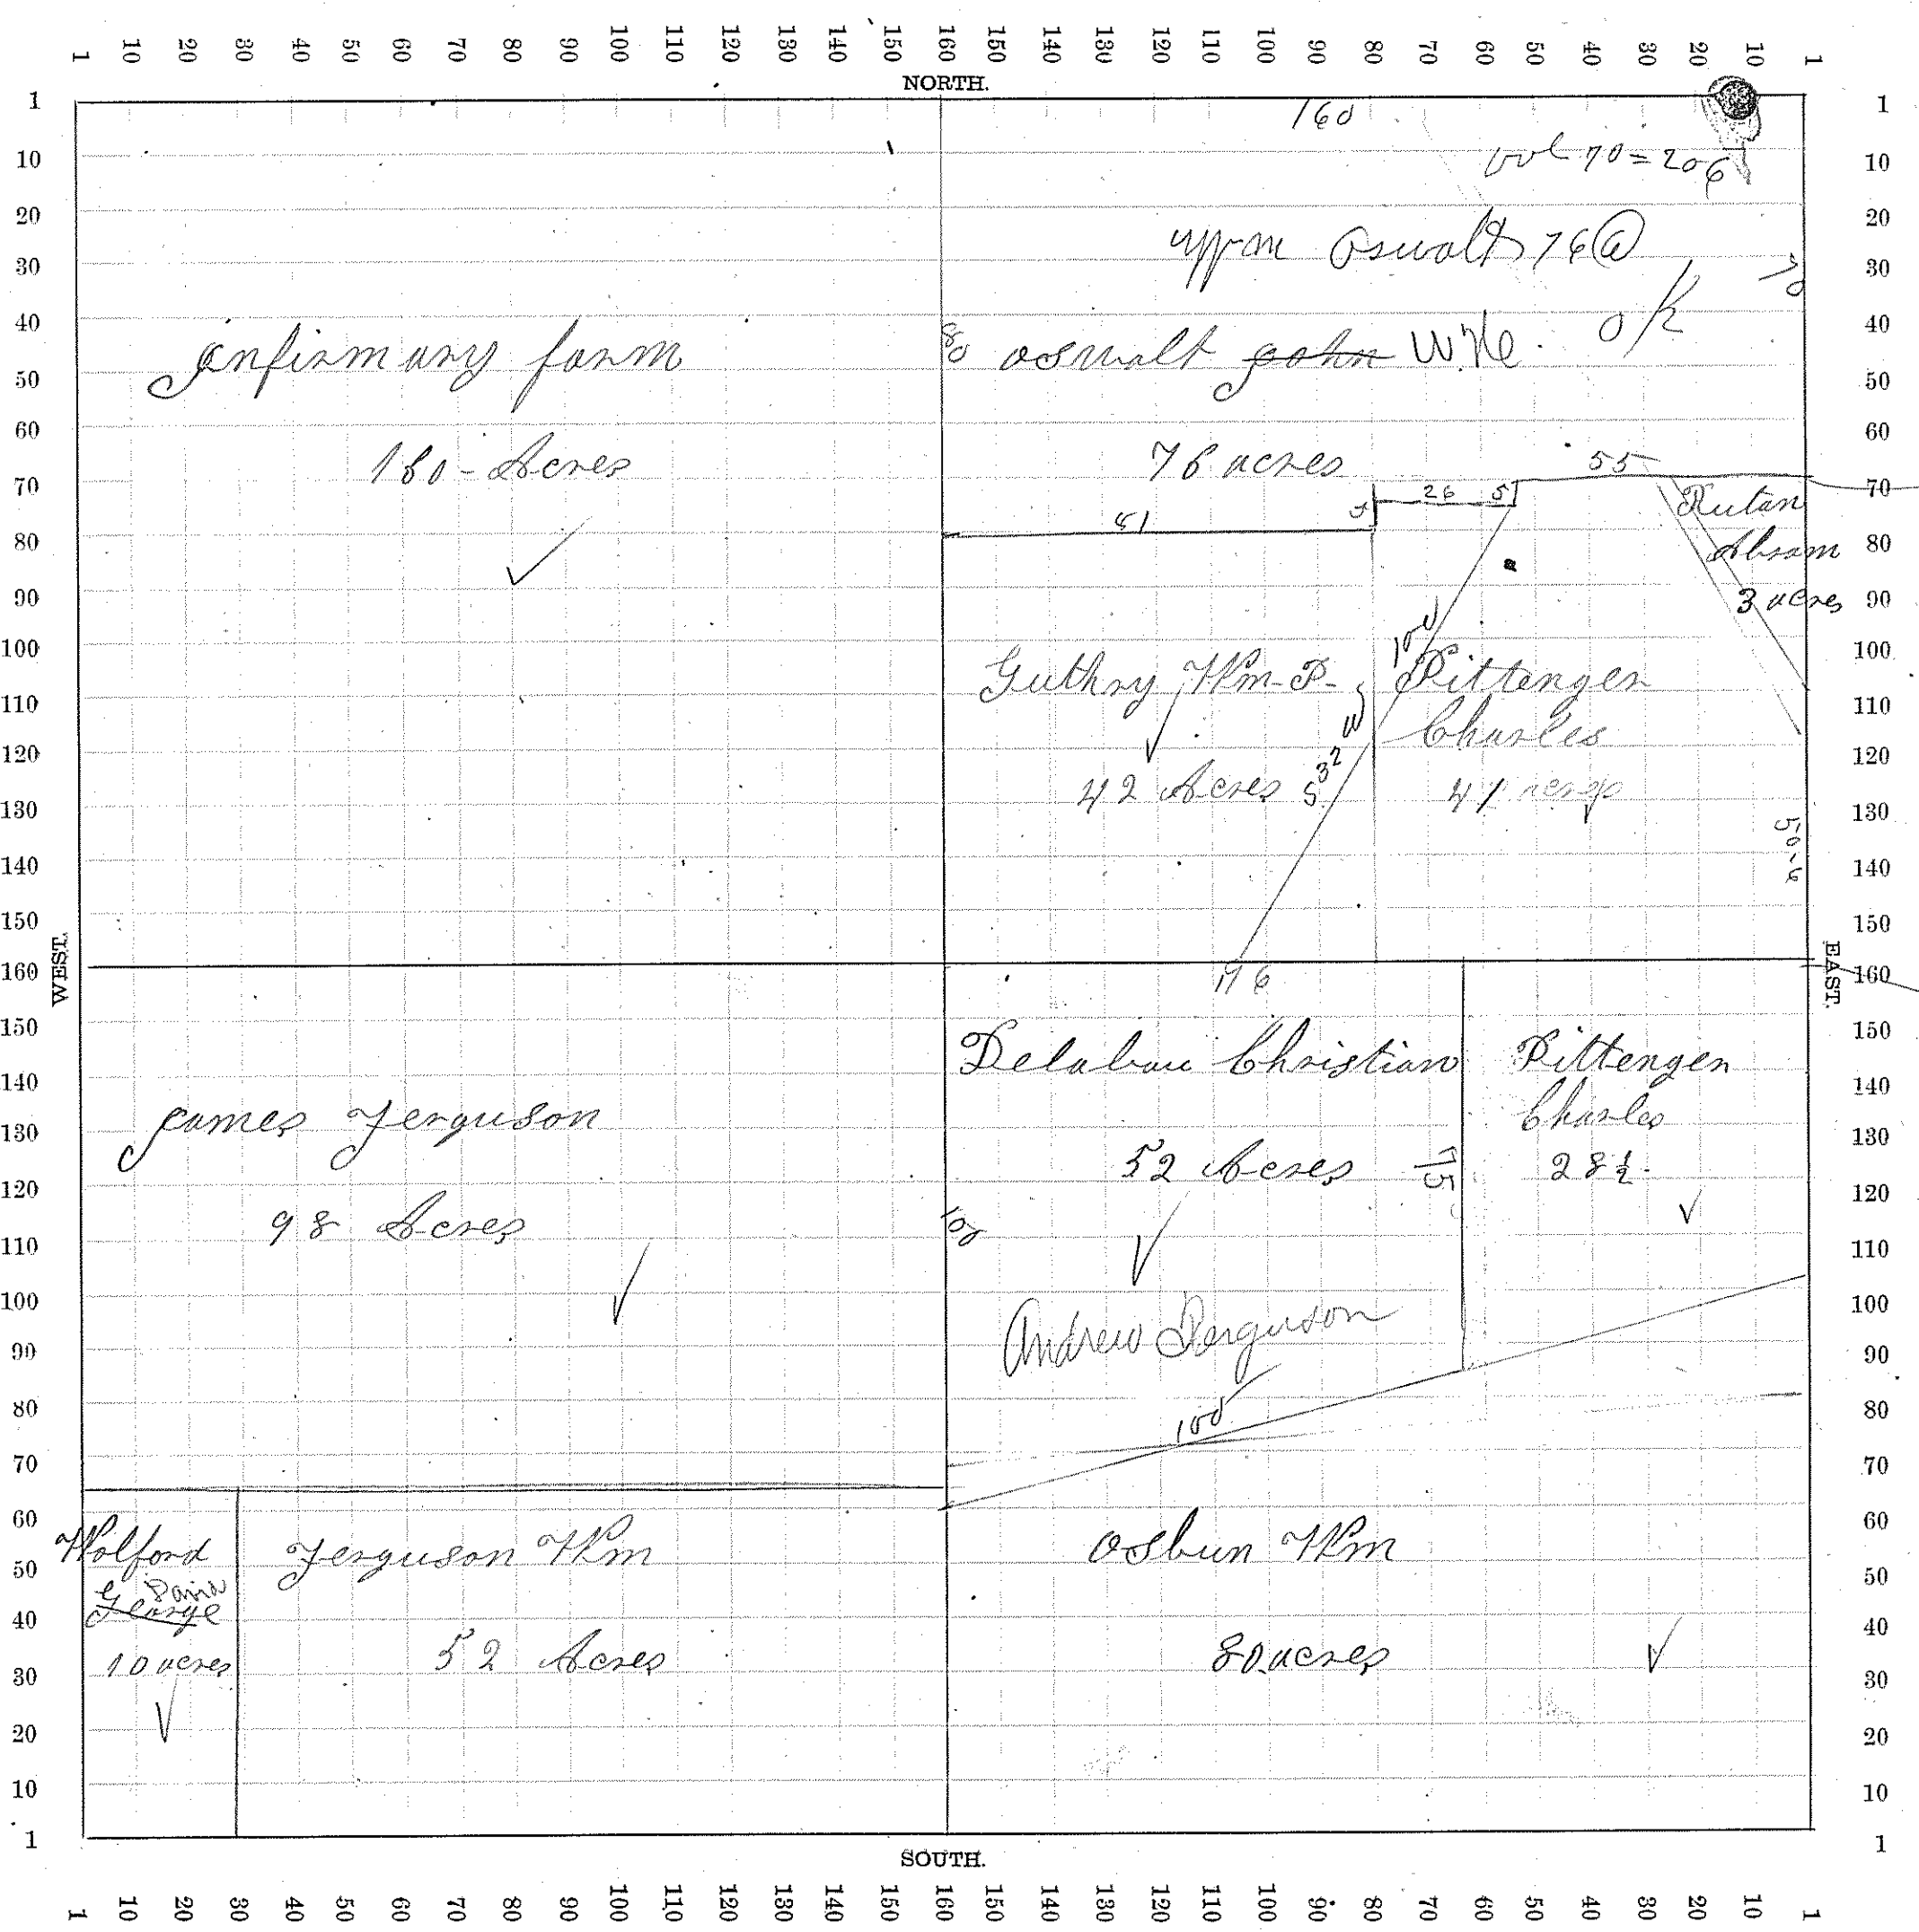 1 10 20 30 40 50 60 70 80 90 100 110 120 130 140 150 160 150 140 130 120 110 100 90 80 70 60 50 40 30 20 10 1
NORTH.
1 10 20 30 40 50 60 70 80 90 100 110 120 130 140 150 160 150 140 130 120 110 100 90 80 70 60 50 40 30 20 10 1
WEST.
infirmary farm
160 - Acres
160
vol 70 = 206
Wm Oswalt 76 @
OK
70
80
oswalt john W.H.
76 acres
81
5
26
5
55
Rutan
Abram
3 acres
Guthry Wm P.
42 Acres
100
32
Pittenger
Charles
41 acres
50-6
james Ferguson
98 Acres
116
Delabau Christian
52 Acres
75
108
Andrew Ferguson
100
Pittenger
Charles
28 ½
Wolford
David
George
10 acres
Ferguson Wm
52 Acres
Osbun Wm
80 acres
EAST.
1 10 20 30 40 50 60 70 80 90 100 110 120 130 140 150 160 150 140 130 120 110 100 90 80 70 60 50 40 30 20 10 1
SOUTH.
1 10 20 30 40 50 60 70 80 90 100 110 120 130 140 150 160 150 140 130 120 110 100 90 80 70 60 50 40 30 20 10 1